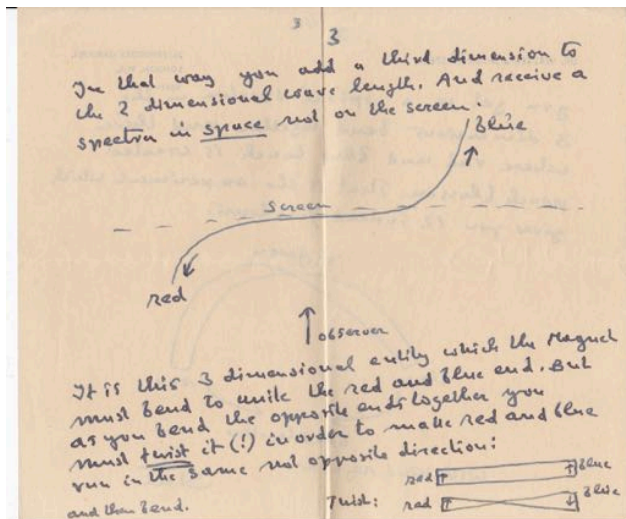 3
3
In that way you add a third dimension to
the 2 dimensional wave length. And receive a
spectra in space not on the screen.
Blue
screen
red
observer
It is this 3 dimensional entity which the Magnet
must bend to unite the red and blue end. But
as you bend the opposite ends together you
must twist it (!) in order to make red and blue
run in the same not opposite direction:
red Blue
and then bend. Twist: red Blue